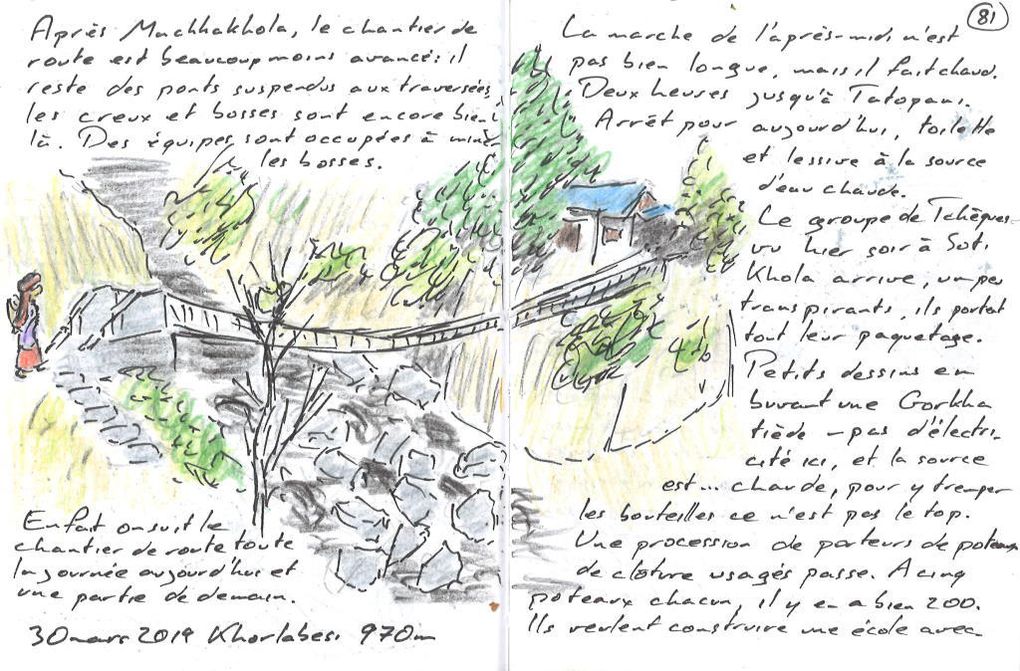 Après Machhakhola, le chantier de
route est beaucoup moins avancé : il
reste des ponts suspendus aux traversées,
les creux et bosses sont encore bien
là. Des équipes sont occupées à miner
les bosses.
En fait on suit le
chantier de route toute
la journée aujourd'hui et
une partie de demain.
30 mars 2019 Khorlabesi 970m
81
La marche de l'après-midi n'est
pas bien longue, mais il fait chaud.
Deux heures jusqu'à Tatopani.
Arrêt pour aujourd'hui, toilette
et lessive à la source
d'eau chaude.
Le groupe de Tchèques
vu hier soir à Soti
Khola arrive, un peu
transpirants, ils portent
tout leur paquetage.
Petits dessins en
buvant une Gorkha
tiède - pas d'électri-
cité ici, et la source
est... chaude, pour y tremper
les bouteilles ce n'est pas le top.
Une procession de porteurs de poteaux
de clôture usagés passe. A cinq
poteaux chacun, il y en a bien 200.
Ils veulent construire une école avec.